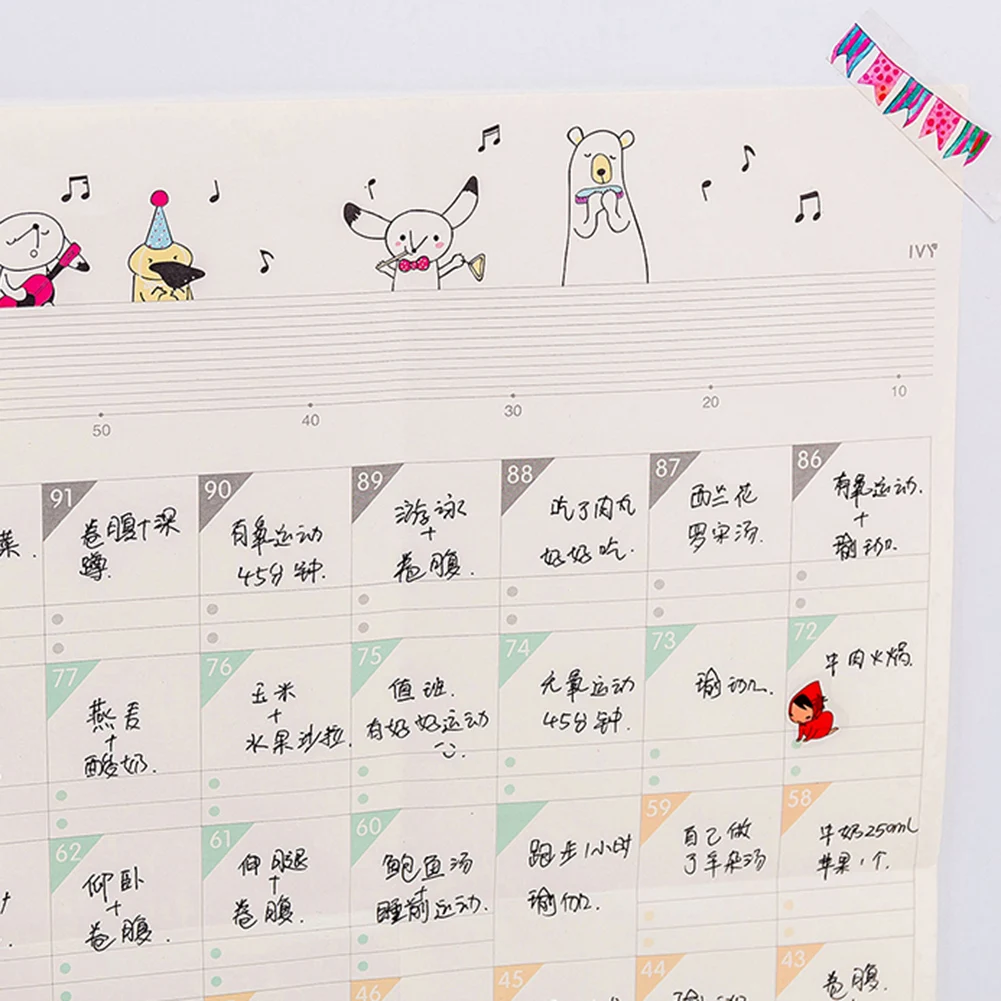 IVY
50
40
30
20
10
91
卷腹+深
蹲.
90
有氧运动
45分钟.
89
游泳
+
卷腹.
88
吃了肉丸
好好吃.
87
西兰花
罗宋汤.
86
有氧运动.
+
瑜伽.
菜.
77
燕麦
+
酸奶.
76
玉米
+
水果沙拉.
75
值班.
有好好运动
74
元氧运动
45分钟.
73
瑜伽.
72
牛肉火焗.
62
仰卧
+
卷腹.
61
伸腿
+
卷腹.
60
鲍鱼汤
+
睡前运动.
跑步1小时
瑜伽.
59
自己做
了羊杂汤
58
牛奶250mL
苹果1个.
46
45
44
瑜伽.
43
卷腹.